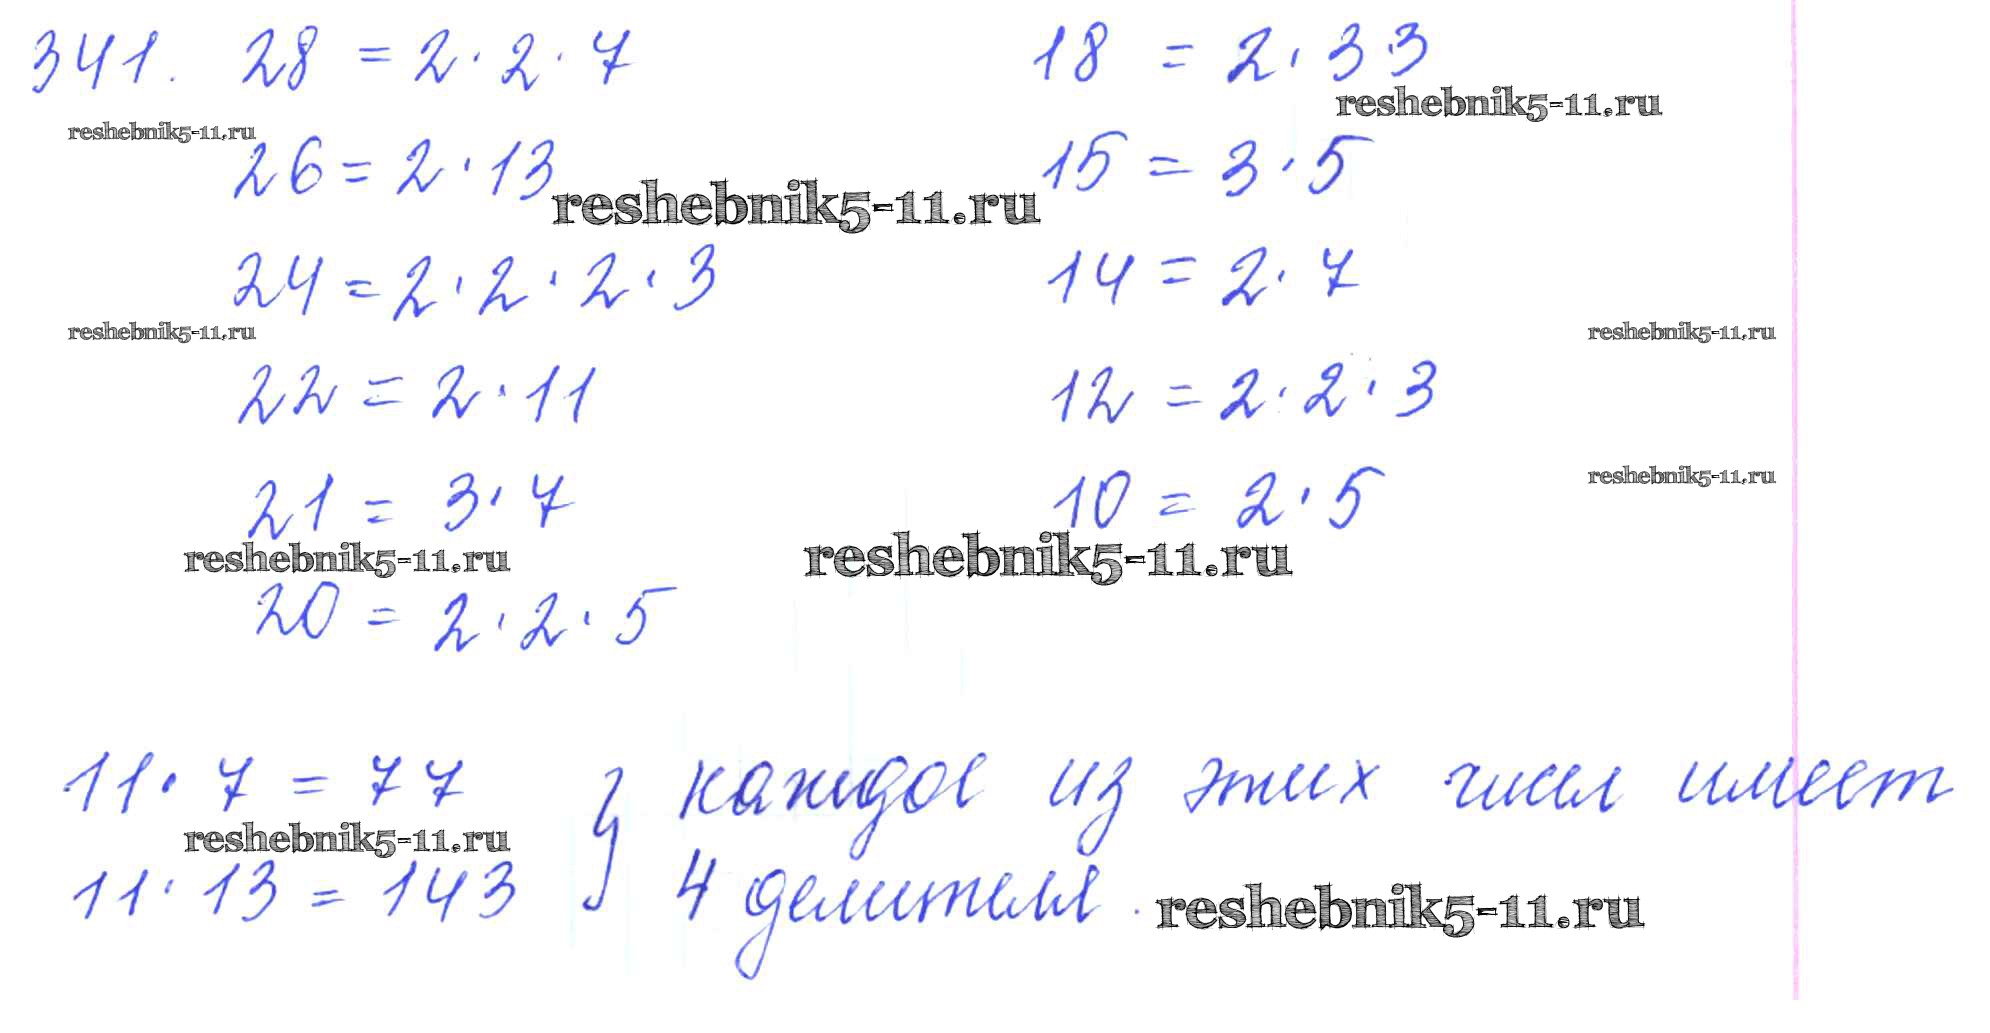 341. 28 = 2 · 2 · 7
18 = 2 · 3 · 3
reshebnik5-11.ru
reshebnik5-11.ru
26 = 2 · 13
15 = 3 · 5
reshebnik5-11.ru
24 = 2 · 2 · 2 · 3
14 = 2 · 7
reshebnik5-11.ru
reshebnik5-11.ru
22 = 2 · 11
12 = 2 · 2 · 3
reshebnik5-11.ru
21 = 3 · 7
10 = 2 · 5
reshebnik5-11.ru
reshebnik5-11.ru
20 = 2 · 2 · 5
11 · 7 = 77 } каждое из этих чисел имеет
reshebnik5-11.ru
11 · 13 = 143 4 делителя.
reshebnik5-11.ru